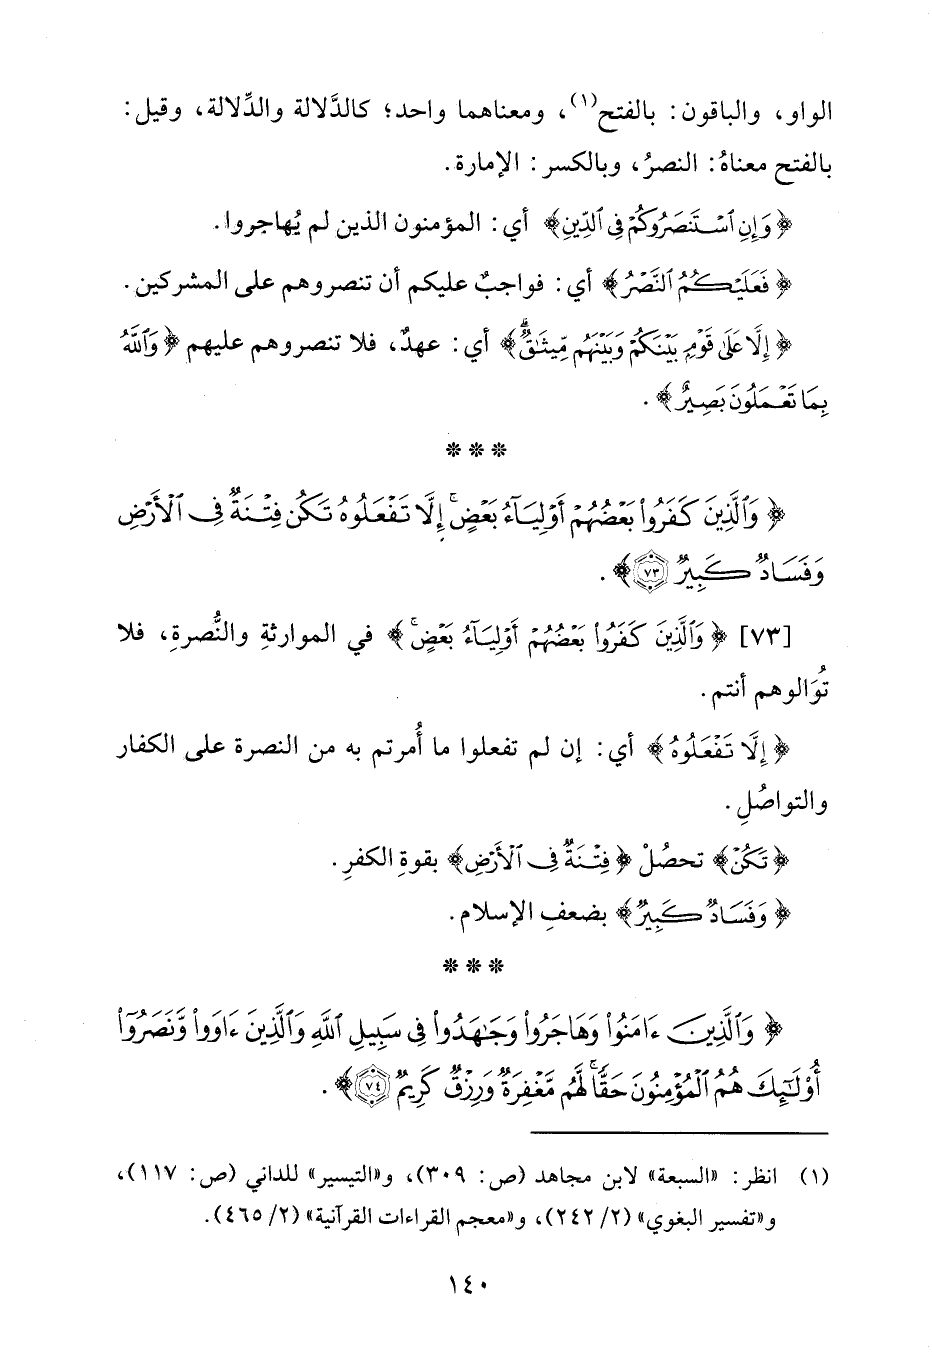 الواو، والباقون: بالفتح(١)، ومعناهما واحد؛ كالدَّلالة والدِّلالة، وقيل:
بالفتح معناهُ: النصرُ، وبالكسر: الإمارة.
﴿وَإِنِ ٱسْتَنصَرُوكُمْ فِى ٱلدِّينِ﴾ أي: المؤمنون الذين لم يُهاجروا.
﴿فَعَلَيْكُمُ ٱلنَّصْرُ﴾ أي: فواجبٌ عليكم أن تنصروهم على المشركين.
﴿إِلَّا عَلَىٰ قَوْمٍۭ بَيْنَكُمْ وَبَيْنَهُم مِّيثَٰقٌ ۗ﴾ أي: عهدٌ، فلا تنصروهم عليهم ﴿وَٱللَّهُ
بِمَا تَعْمَلُونَ بَصِيرٌ﴾.
* * *
﴿وَٱلَّذِينَ كَفَرُوا۟ بَعْضُهُمْ أَوْلِيَآءُ بَعْضٍ ۚ إِلَّا تَفْعَلُوهُ تَكُن فِتْنَةٌ فِى ٱلْأَرْضِ
وَفَسَادٌ كَبِيرٌ ٧٣﴾.
[٧٣] ﴿وَٱلَّذِينَ كَفَرُوا۟ بَعْضُهُمْ أَوْلِيَآءُ بَعْضٍ ۚ﴾ في الموارثةِ والنُّصرةِ، فلا
تُوَالوهم أنتم.
﴿إِلَّا تَفْعَلُوهُ﴾ أي: إن لم تفعلوا ما أُمرتم به من النصرة على الكفار
والتواصُلِ.
﴿تَكُنْ﴾ تحصُلْ ﴿فِتْنَةٌ فِى ٱلْأَرْضِ﴾ بقوةِ الكفرِ.
﴿وَفَسَادٌ كَبِيرٌ﴾ بضعفِ الإسلام.
* * *
﴿وَٱلَّذِينَ ءَامَنُوا۟ وَهَاجَرُوا۟ وَجَٰهَدُوا۟ فِى سَبِيلِ ٱللَّهِ وَٱلَّذِينَ ءَاوَوا۟ وَّنَصَرُوٓا۟
أُو۟لَٰٓئِكَ هُمُ ٱلْمُؤْمِنُونَ حَقًّا ۚ لَّهُم مَّغْفِرَةٌ وَرِزْقٌ كَرِيمٌ ٧٤﴾.
(١) انظر: «السبعة» لابن مجاهد (ص: ٣٠٩)، و«التيسير» للداني (ص: ١١٧)،
و«تفسير البغوي» (٢/ ٢٤٢)، و«معجم القراءات القرآنية» (٢/ ٤٦٥).
١٤٠